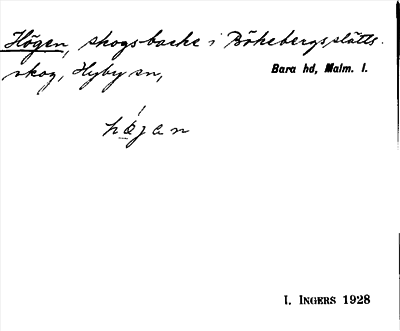 Högen, skogsbacke i Bökebergsslätts
skog, Hyby sn,
Bara hd, Malm. l.
högen
I. INGERS 1928